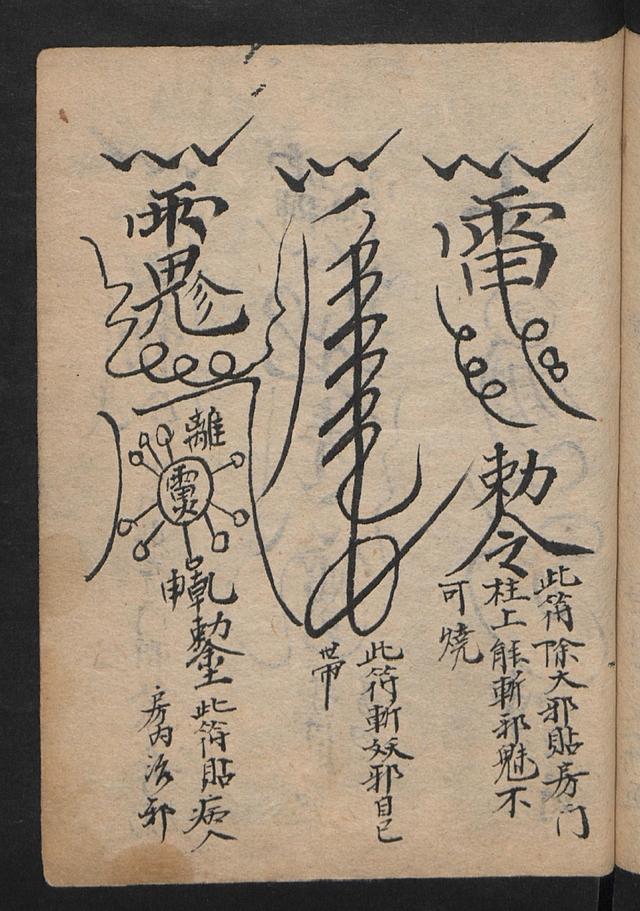 雷
勅令
此符除大邪貼房门
柱上能斬邪魅不
可燒
此符斬妖邪自己
帶
離
靈
乾
此符貼病人
房内治邪